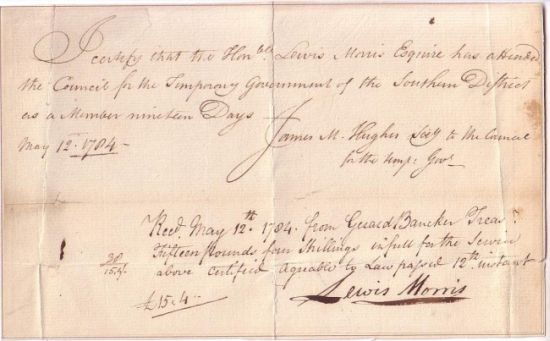 I certify that the Honble. Lewis Morris Esquire has attended
the Council for the Temporary Government of the Southern District
as a Member nineteen Days
May 12. 1784 -
James M. Hughes Secy to the Council
for the Temp: Govt
Recd. May 12th. 1784. from Gerard Bancker Treas:
Fifteen pounds four Shillings in full for the Service
above Certified Agreable to Law passed 12th. instant
£15.4 -
Lewis Morris